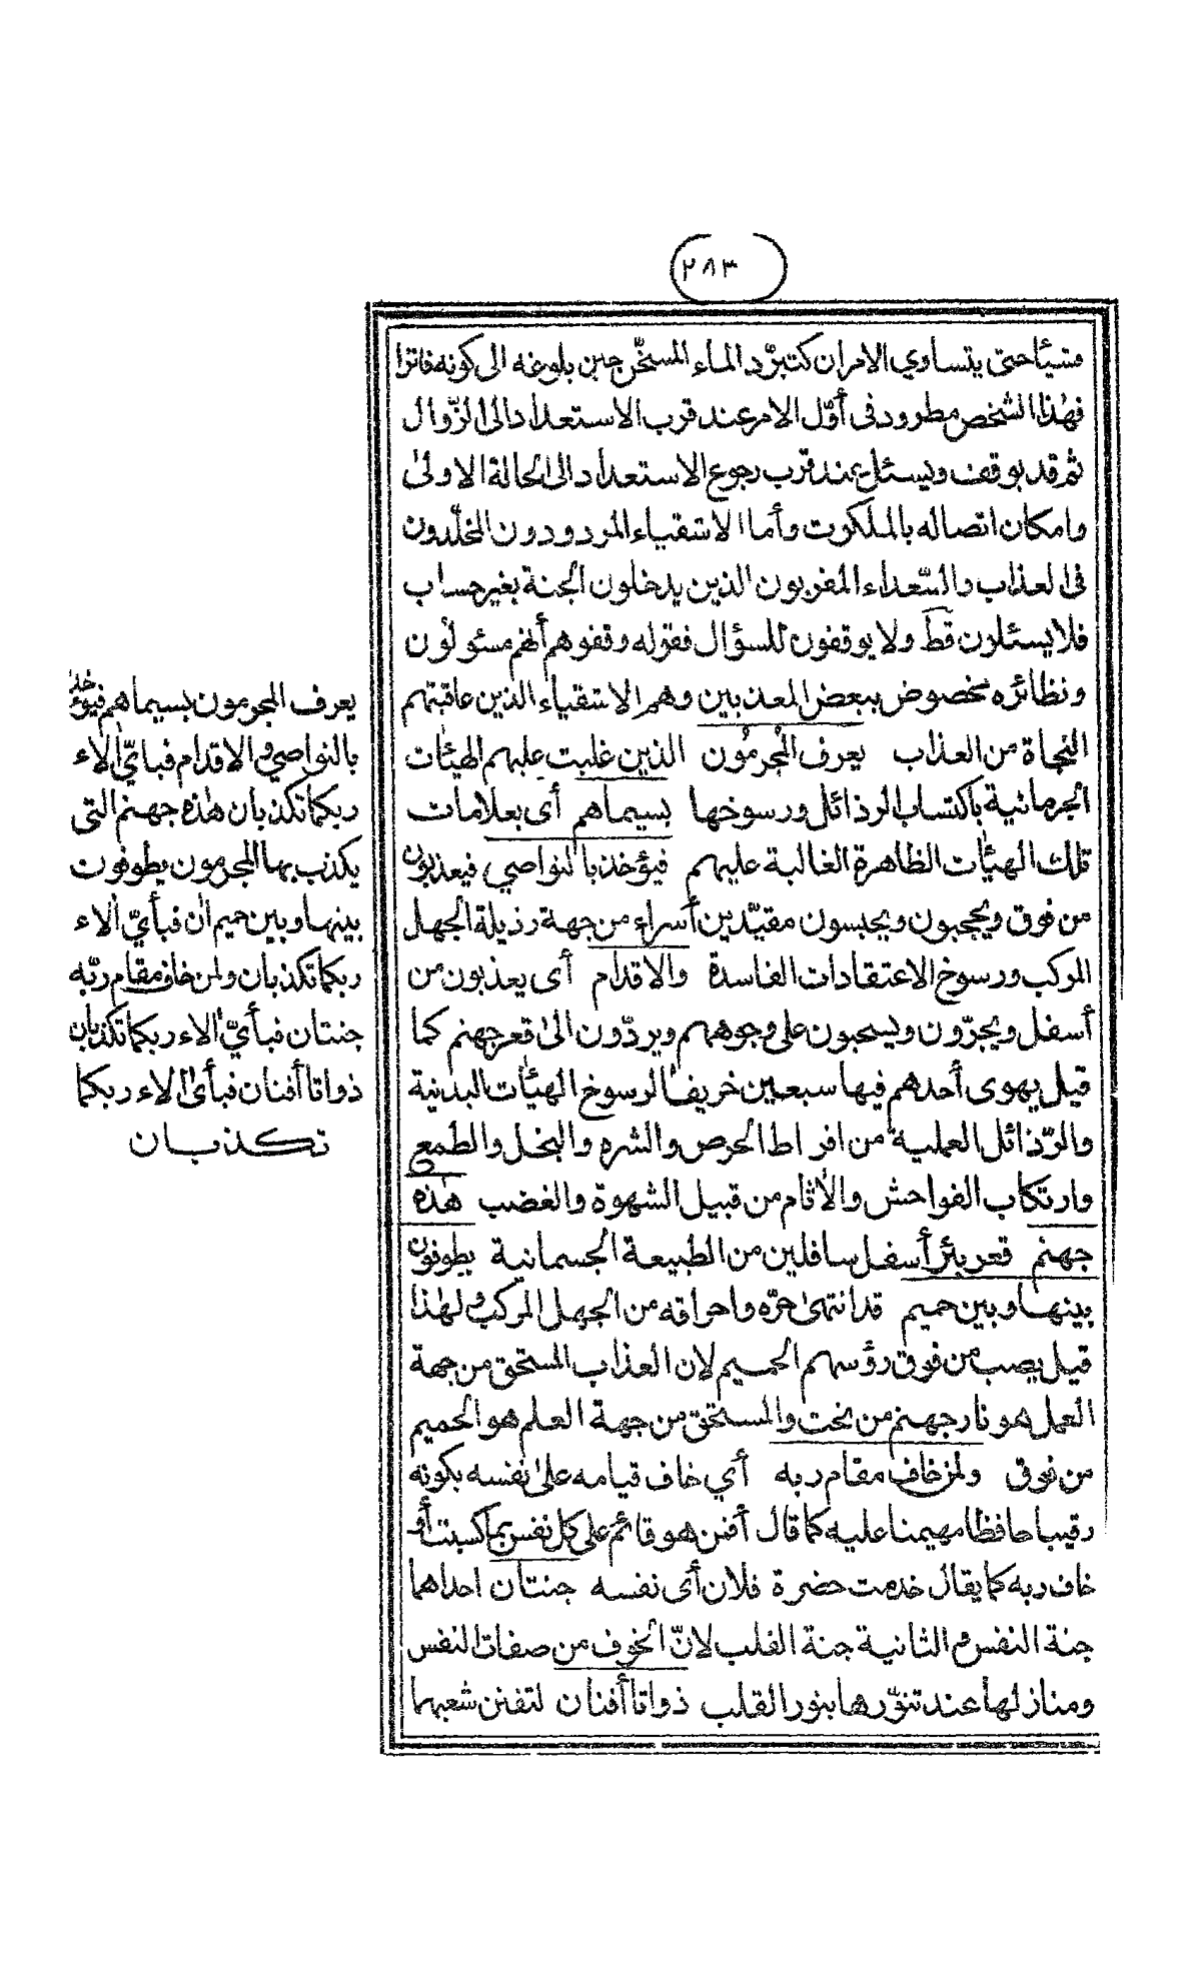 ٢٨٣
فشيئا حتى يتساوي الامران كتبرّد الماء المسخّن حين بلوغه الى كونه فاترا
فهٰذا الشخص مطرود فى أوّل الامر عند قرب الاستعداد الى الزّوال
ثم قد يوقف ويسئل عند قرب رجوع الاستعداد الى الحالة الاولىٰ
وامكان اتصاله بالملكوت وأما الاشقياء المردودون المخلّدون
فى العذاب والسّعداء المقربون الذين يدخلون الجنة بغير حساب
فلا يسئلون قطّ ولا يوقفون للسؤال فقوله وقفوهم أنهم مسئولون
ونظائره مخصوص ببعض المعذبين وهم الاشقياء الذين عاقبتهم
النجاة من العذاب يعرف المُجرمُون الذين غلبت عليهم الهيئات
الجرمانية باكتساب الرذائل ورسوخها بسيماهم أى بعلامات
تلك الهيئات الظاهرة الغالبة عليهم فيؤخذ بالنواصي فيعذبون
من فوق ويحجبون ويحبسون مقيّدين أسراء من جهة رذيلة الجهل
المركب ورسوخ الاعتقادات الفاسدة والاقدام أى يعذبون من
أسفل ويجرّون ويسحبون على وجوههم ويردّون الىٰ قعر جهنم كما
قيل يهوى أحدهم فيها سبعين خريفا لرسوخ الهيئات البدنية
والرّذائل العملية من افراط الحرص والشره والبخل والطمع
وارتكاب الفواحش والاٰثام من قبيل الشهوة والغضب هٰذه
جهنم قعر بئر أسفل سافلين من الطبيعة الجسمانية يطوفون
بينها وبين حميم قد انتهىٰ حرّه واحراقه من الجهل المركب ولهٰذا
قيل يصب من فوق رؤسهم الحميم لان العذاب المستحق من جهة
العمل هو نار جهنم من تحت والمستحق من جهة العلم هو الحميم
من فوق ولمن خاف مقام ربه أي خاف قيامه علىٰ نفسه بكونه
رقيبا حافظا مهيمنا عليه كما قال أفمن هو قائم على كل نفس بما كسبت أو
خاف ربه كما يقال خدمت حضرة فلان أى نفسه جنتان احداهما
جنة النفس والثانية جنة القلب لانّ الخوف من صفات النفس
ومنازلها عند تنوّرها بنور القلب ذواتا أفنان لتفنن شعبهما
يعرف المجرمون بسيماهم فيؤخذ
بالنواصي والاقدام فبايّ اٰلاء
ربكما تكذبان هٰذه جهنم التى
يكذب بها المجرمون يطوفون
بينها وبين حميم اٰن فبأيّ اٰلاء
ربكما تكذبان ولمن خاف مقام ربّه
جنتان فبأيّ اٰلاء ربكما تكذبان
ذواتا أفنان فبأىّ اٰلاء ربكما
تكذبان